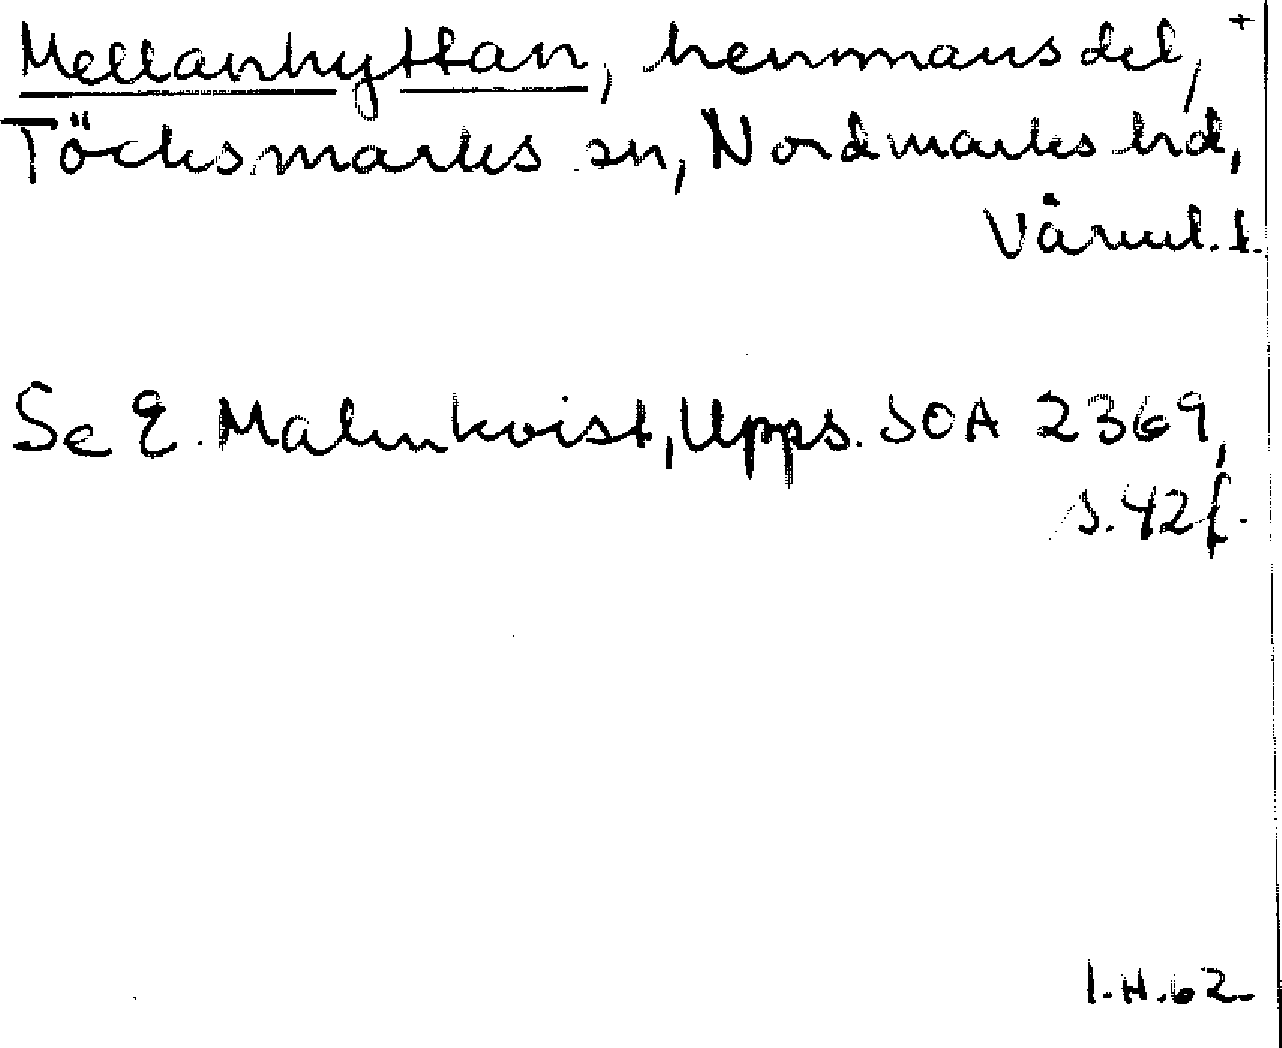 Mellanhyttan, hemmansdel, +
Töcksmarks sn, Nordmarks hd,
Värml. l.
Se E. Malmkvist, Upps. SOA 2369,
s. 42 f.
I.H. 62.